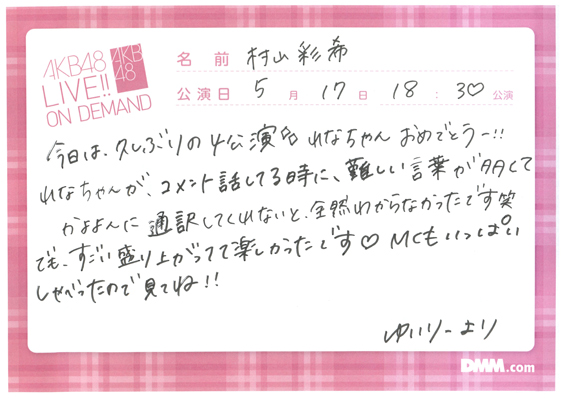 AKB48
LIVE!!
ON DEMAND
AKB
48
名前 村山彩希
公演日 5月17日 18:30公演
今日は、久しぶりの4公演 れなちゃん おめでとうー!!
れなちゃんが、コメント話してる時に、難しい言葉が多くて
かよよんに通訳してくれないと、全然わからなかったです笑
でも、すごい盛り上がってて楽しかったです♡ MCもいっぱい
しゃべったので見てね!!
ゆいりーより
DMM.com